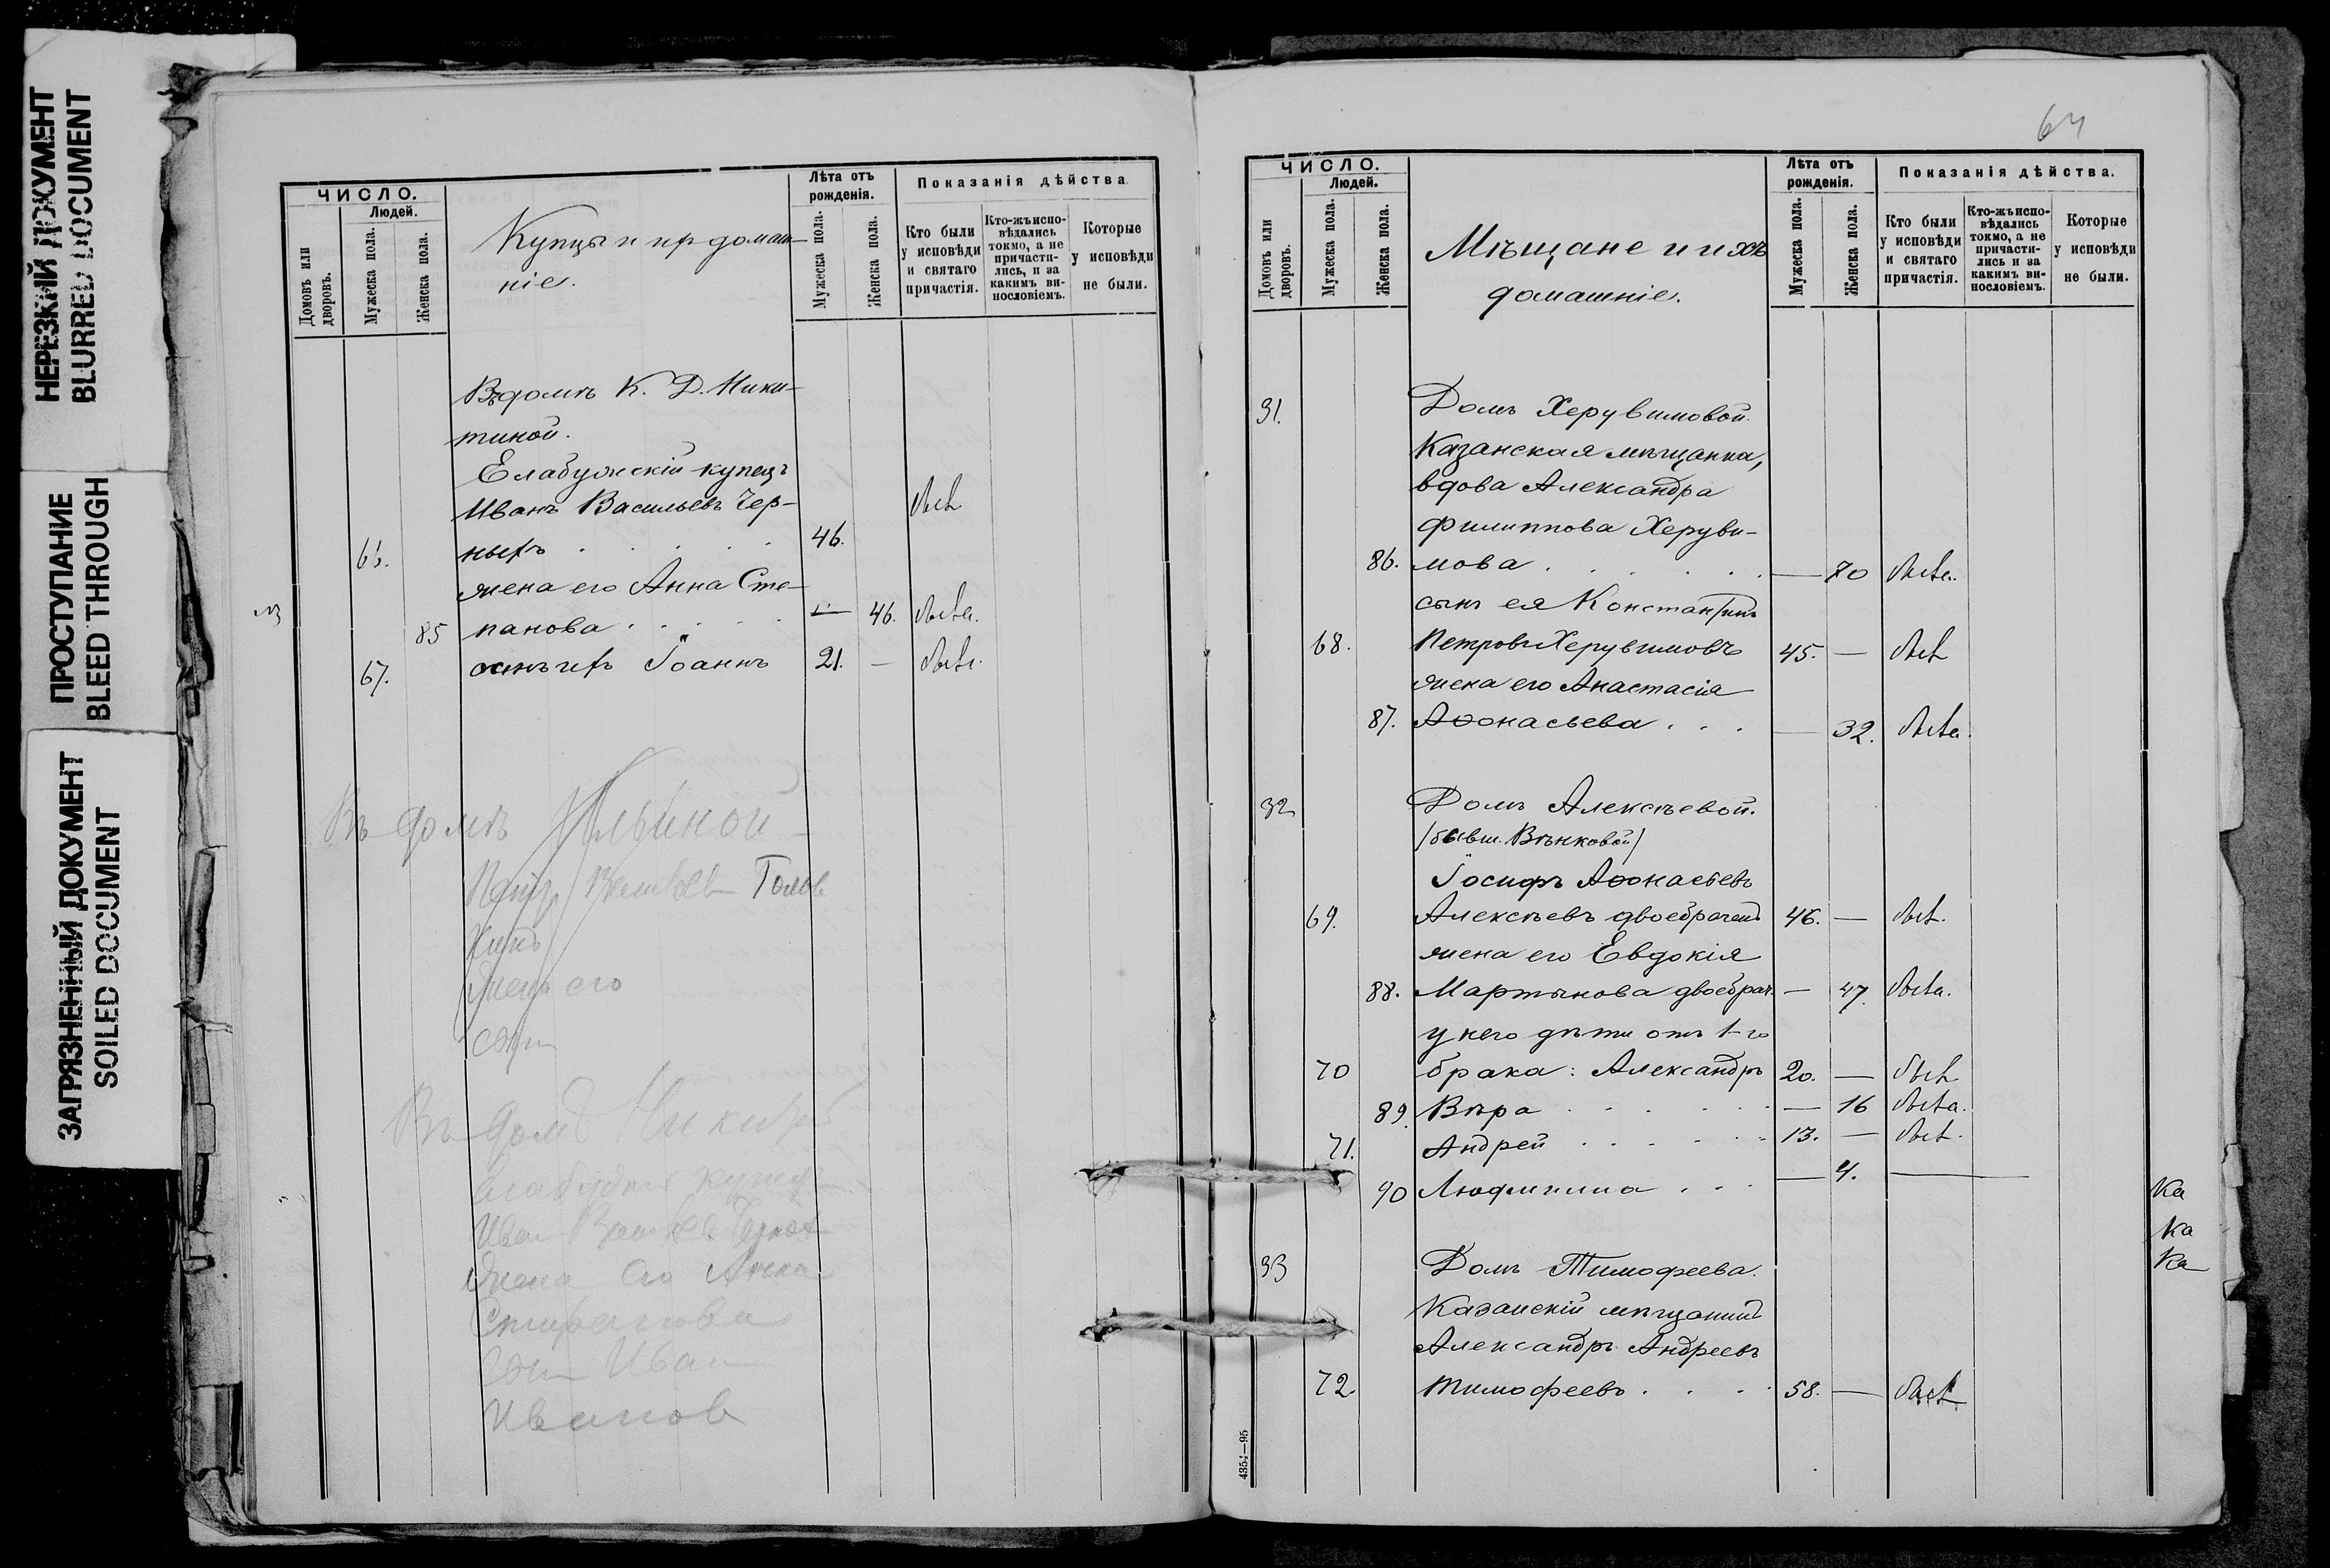 НЕРЕЗКИЙ ДОКУМЕНТ
BLURRED DOCUMENT
ПРОСТУПАНИЕ
BLEED THROUGH
ЗАГРЯЗНЕННЫЙ ДОКУМЕНТ
SOILED DOCUMENT
ЧИСЛО.
Людей.
Домовъ или дворовъ.
Мужеска пола.
Женска пола.
Купцы и ихъ домаш-
ніе.
Лѣта отъ рожденія.
Мужеска пола.
Женска пола.
Показанія дѣйства
Кто были у исповѣди и святаго причастія.
Кто-жъ испо-вѣдались токмо, а не причасти-лись, и за какимъ ви-нословіемъ.
Которые у исповѣди не были.
Въ домѣ К. Д. Ники-
тиной.
Елабужскій купецъ
Иванъ Васильевъ Чер-
66. ныхъ . . . . . 46. былъ
жена его Анна Сте-
85 панова . . . . . — 46. была.
67. сынъ ихъ Іоаннъ 21. — былъ.
Въ домѣ Ильиной
Петр Васильев Голов
Кинъ
жена его
сын
Въ домѣ
купец
Иван Васильев Черных
жена его Анна
сын Иван
Иванов
64
ЧИСЛО.
Людей.
Домовъ или дворовъ.
Мужеска пола.
Женска пола.
Мѣщане и ихъ
домашніе.
Лѣта отъ рожденія.
Мужеска пола.
Женска пола.
Показанія дѣйства.
Кто были у исповѣди и святаго причастія.
Кто-жъ испо-вѣдались токмо, а не причасти-лись и за какимъ ви-нословіемъ.
Которые у исповѣди не были.
31. Домъ Херувимовой.
Казанская мѣщанка,
вдова Александра
Филиппова Херуви-
86. мова . . . . . — 70 была.
сынъ ея Константинъ
68. Петровъ Херувимовъ 45. — былъ
жена его Анастасія
87. Аѳонасьева . . . — 32. была.
32 Домъ Алексѣевой.
/бывш. Вѣнковой/
Іосифъ Аѳонасьевъ
69. Алексѣевъ двоебрачный 46. — былъ.
жена его Евдокія
88. Мартынова двоебрач. — 47. была.
у него дѣти отъ 1-го
70 брака: Александръ 20. — былъ
89. Вѣра . . . . . — 16 была.
71. Андрей . . . . . 13. — былъ.
90 Людмила . . . — 4. —
33 Домъ Тимофеева.
Казанскій мѣщанинъ
Александръ Андреевъ
72. Тимофеевъ . . . . 58. — былъ
Ка
Ка
Ка
4354—95